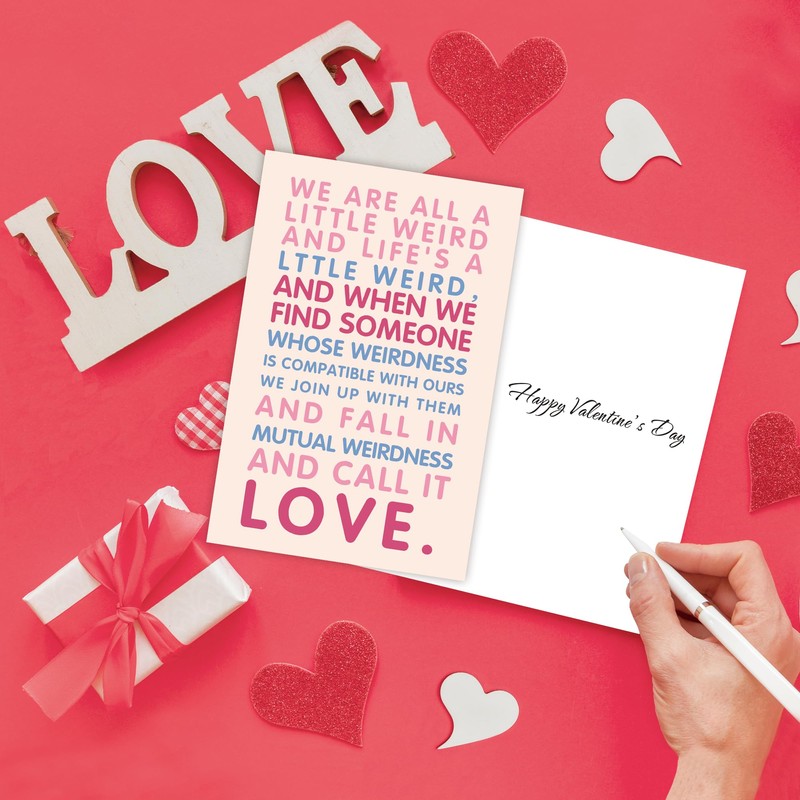 LOVE
WE ARE ALL A
LITTLE WEIRD
AND LIFE'S A
LTTLE WEIRD,
AND WHEN WE
FIND SOMEONE
WHOSE WEIRDNESS
IS COMPATIBLE WITH OURS
WE JOIN UP WITH THEM
AND FALL IN
MUTUAL WEIRDNESS
AND CALL IT
LOVE.
Happy Valentine's Day